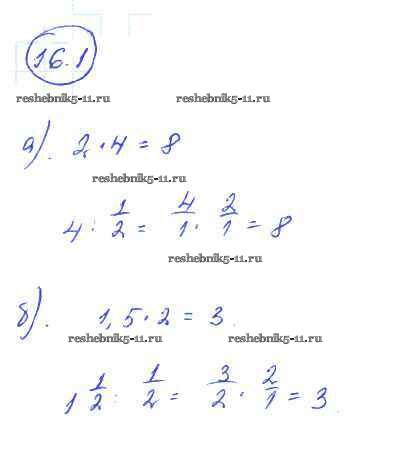 16.1
reshebnik5-11.ru reshebnik5-11.ru
а). 2 · 4 = 8
reshebnik5-11.ru
4 : 1/2 = 4/1 · 2/1 = 8
reshebnik5-11.ru
б). 1,5 · 2 = 3.
reshebnik5-11.ru reshebnik5-11.ru
1 1/2 : 1/2 = 3/2 · 2/1 = 3.